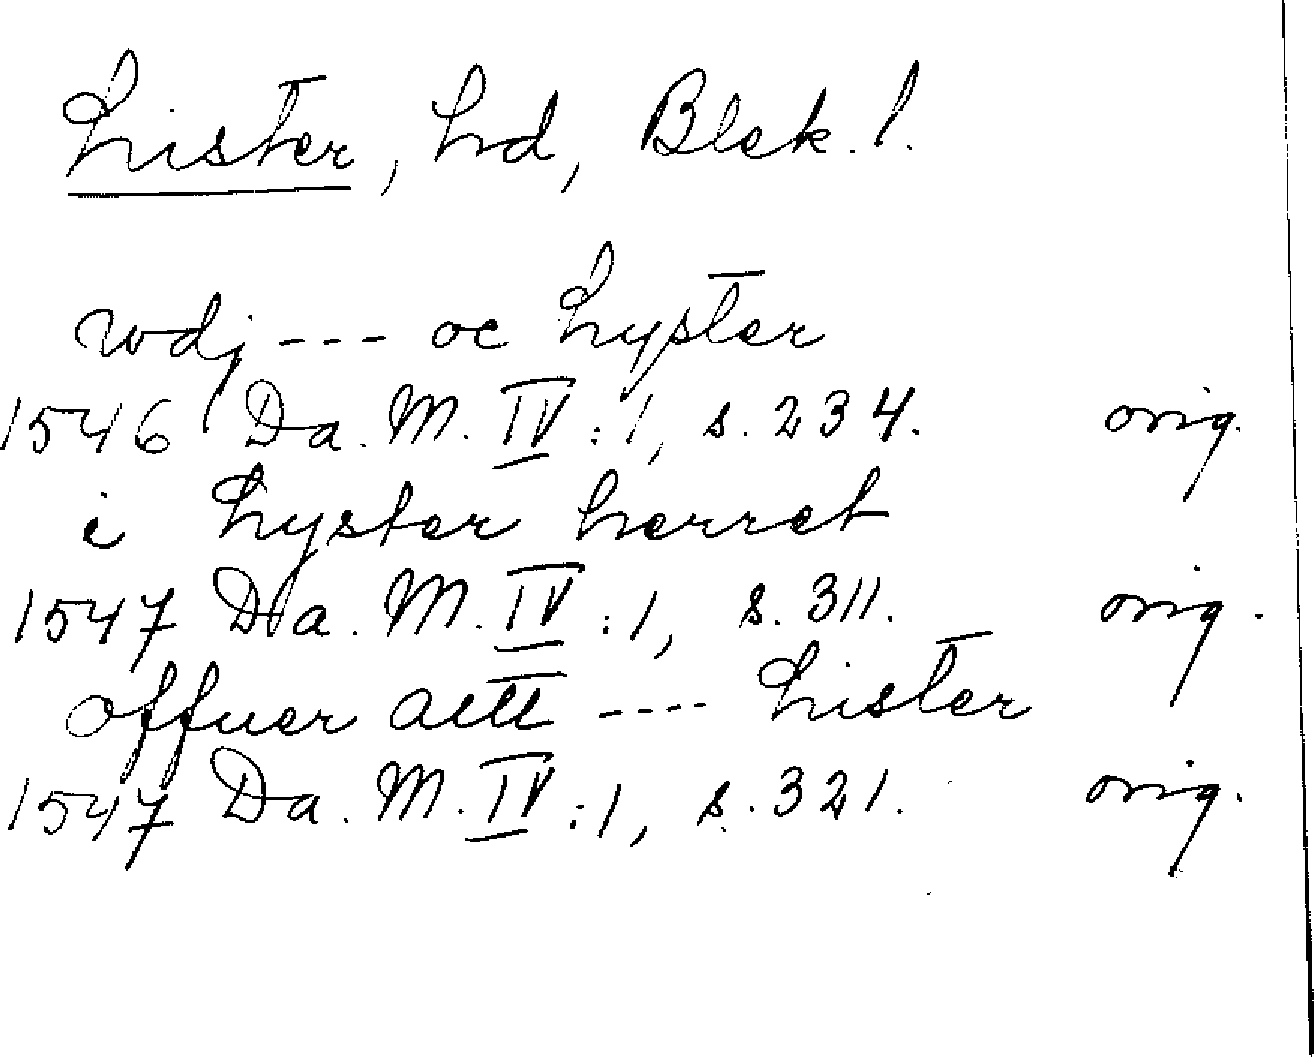 Lister, hd, Blek. l.
wdj --- oc Lyster
1546 Da. M. IV:1, s. 234. orig.
i Lyster herret
1547 Da. M. IV:1, s. 311. orig.
offuer altt ---- Lister
1547 Da. M. IV:1, s. 321. orig.